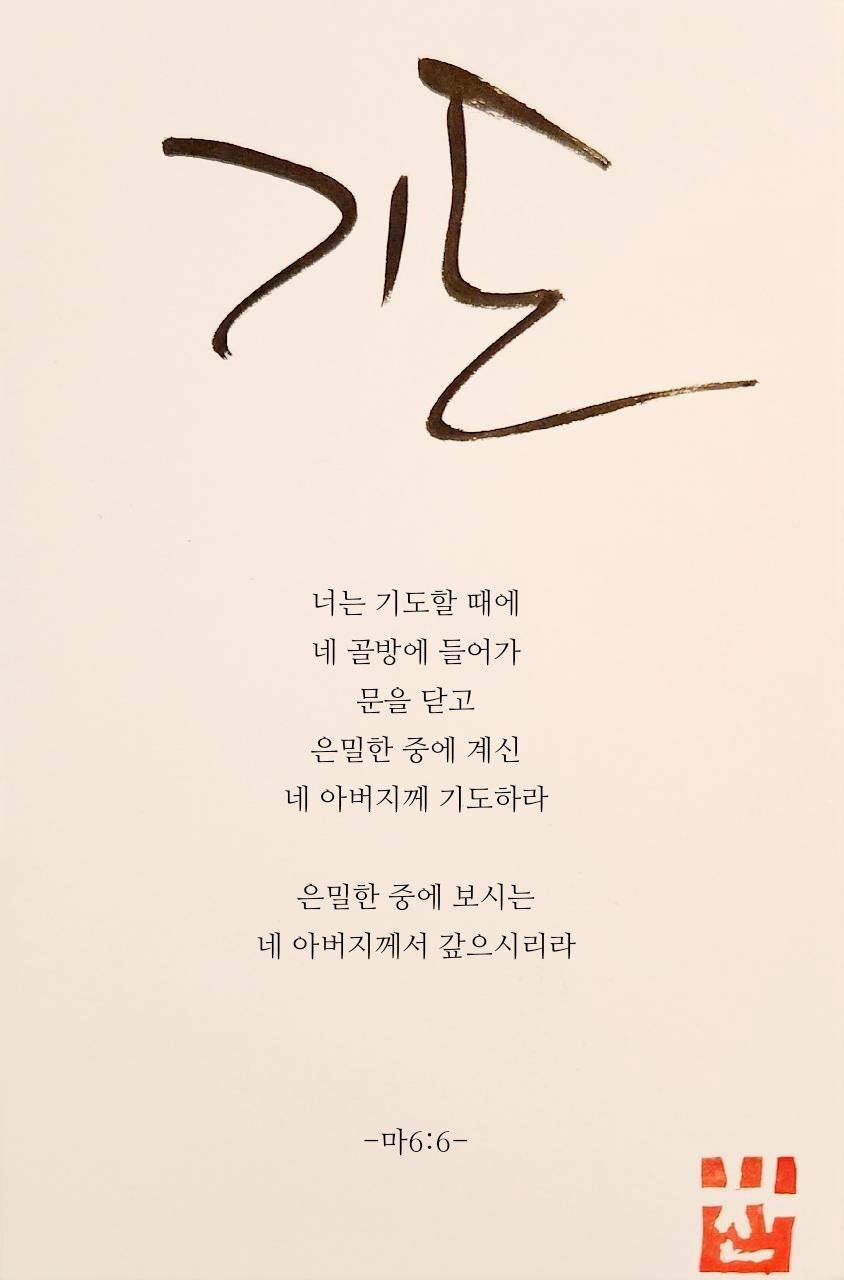 기도
너는 기도할 때에
네 골방에 들어가
문을 닫고
은밀한 중에 계신
네 아버지께 기도하라
은밀한 중에 보시는
네 아버지께서 갚으시리라
-마6:6-